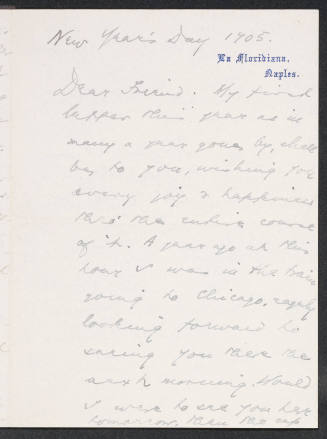 New Year's Day 1905.
La Floridiana,
Naples.
Dear Friend. My first
letter this year as in
many a year gone by, shall
be to you, wishing you
every joy & happiness
thro' the entire course
of it. A year ago at this
hour I was in the train
going to Chicago, eagerly
looking forward to
seeing you there the
next morning. Would
I were to see you here
tomorrow, then the cup